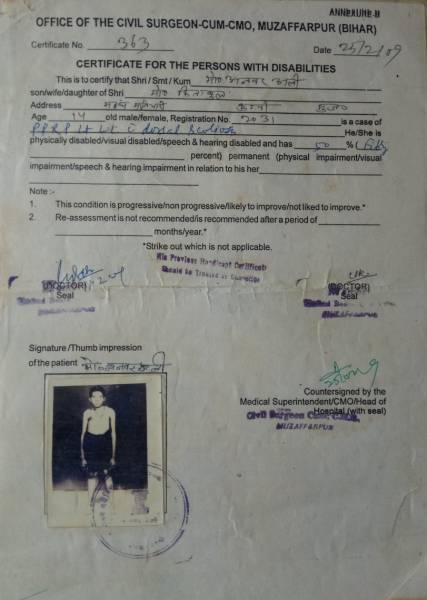 ANNEXURE-II
OFFICE OF THE CIVIL SURGEON-CUM-CMO, MUZAFFARPUR (BIHAR)
Certificate No. 363 Date 25/2/09
CERTIFICATE FOR THE PERSONS WITH DISABILITIES
This is to certify that Shri / Smt / Kum मो० अनवर अली
son/wife/daughter of Shri मो०
Address
Age 14 old male/female, Registration No. 2031 is a case of
PPRP Lt He/She is
physically disabled/visual disabled/speech & hearing disabled and has 50 % (
percent) permanent (physical impairment/visual
impairment/speech & hearing impairment in relation to his her
Note :-
1. This condition is progressive/non progressive/likely to improve/not liked to improve.*
2. Re-assessment is not recommended/is recommended after a period of
months/year.*
*Strike out which is not applicable.
His Previous Handicapt Certificate
Should be Treated as
(DOCTOR) (DOCTOR)
Seal Seal
Signature /Thumb impression
of the patient मो० अनवर अली
Countersigned by the
Medical Superintendent/CMO/Head of
Hospital (with seal)
Civil Surgeon
MUZAFFARPUR